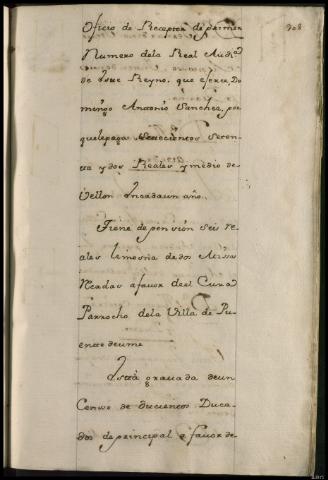 908
Oficio de Receptor de primer
Numero dela Real Aud.ª
de este Reyno, que exerce, Do
mingo Antonio Sanchez, por
quelepaga Setecientos Seten
ta y dos Reales y medio de
Vellon encadaun año.
Tiene de pension seis re
ales limosna de dos Missas
Rezadas afavor deel Cura
Parrocho dela Villa de Pu
entedeume
Está gravada deun
Censo de ducientos Duca
dos de principal a favor de